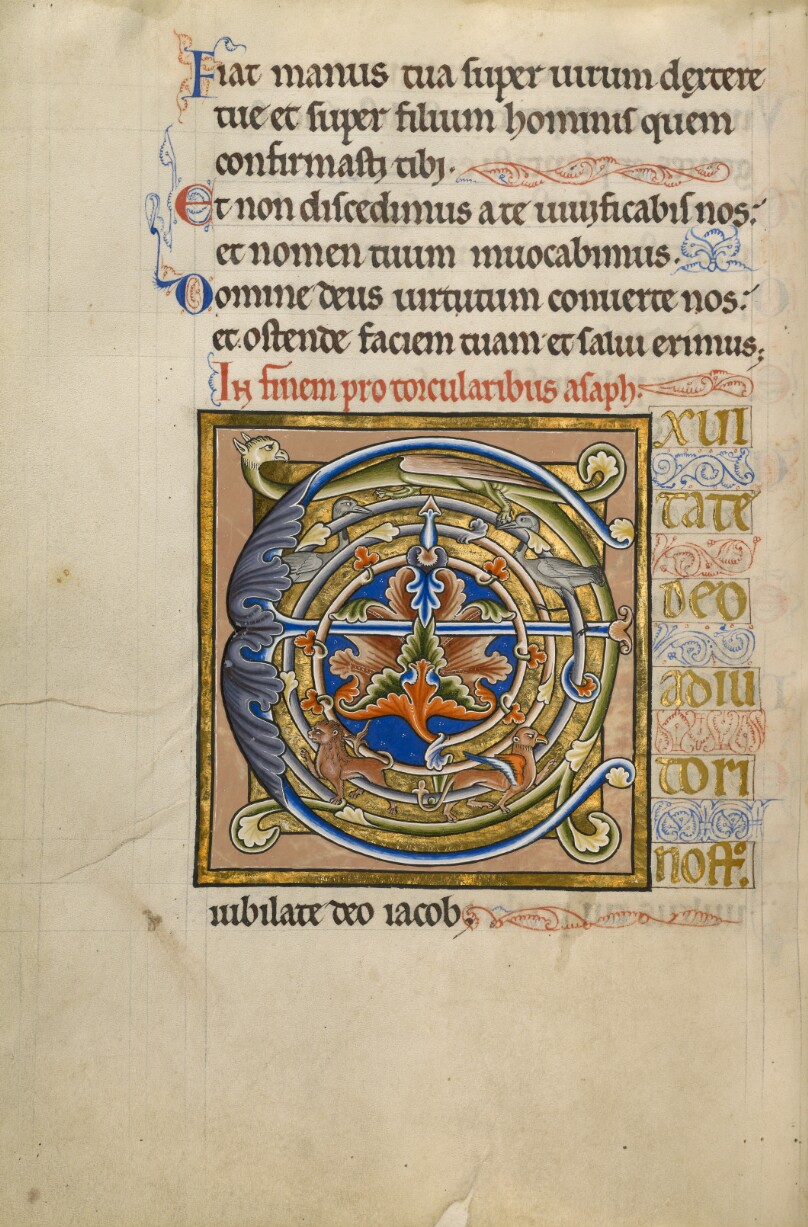 Fiat manus tua super uirum dextere
tue et super filium hominis quem
confirmasti tibi.
Et non discedimus a te uiuificabis nos:
et nomen tuum inuocabimus.
Domine deus uirtutum conuerte nos:
et ostende faciem tuam et salui erimus;
In finem pro torcularibus asaph.
E
XUL
TATE
DEO
ADIU
TORI
NOSTRO:
iubilate deo iacob;